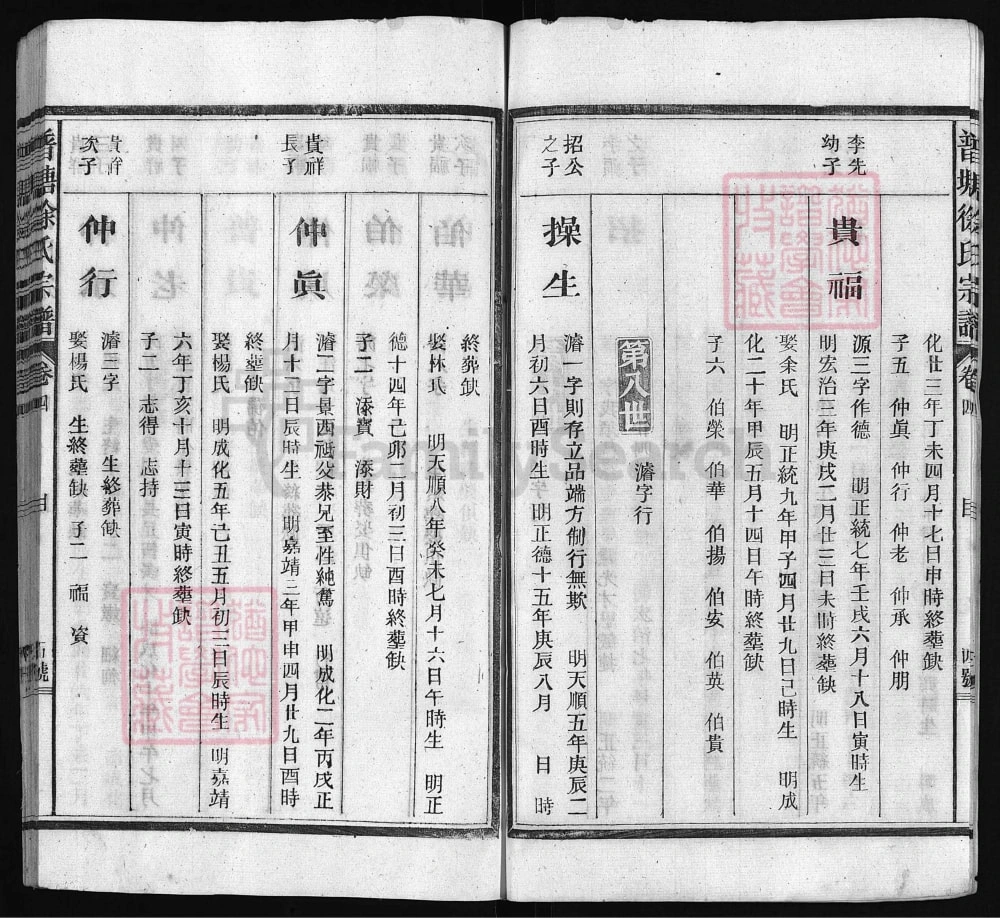 普塘徐氏宗譜 卷四
化廿三年丁未四月十七日申時終塟缺
子五 仲眞 仲行 仲老 仲承 仲朋
李先幼子
貴福
源三字作德 明正統七年壬戌六月十八日寅時生
明宏治三年庚戌二月廿三日未時終塟缺
娶余氏 明正統九年甲子四月廿九日己時生 明成
化二十年甲辰五月十四日午時終塟缺
子六 伯榮 伯華 伯揚 伯安 伯英 伯貴
第八世 濬字行
招公之子
操生
濬一字則存立品端方制行無欺 明天順五年庚辰二
月初六日酉時生 明正德十五年庚辰八月 日 時
終葬缺
娶林氏 明天順八年癸未七月十六日午時生 明正
德十四年己卯二月初三日酉時終塟缺
子二 添寶 添財
貴祥長子
仲眞
濬二字景西祗父恭兄至性純篤 明成化二年丙戌正
月十五日辰時生 明嘉靖三年甲申四月廿九日酉時
終塟缺
娶楊氏 明成化五年己丑五月初三日辰時生 明嘉靖
六年丁亥十月十三日寅時終塟缺
子二 志得 志持
貴祥次子
仲行
濬三字 生終葬缺
娶楊氏 生終塟缺 子二 福 資
普塘徐氏宗譜 卷四
FamilySearch